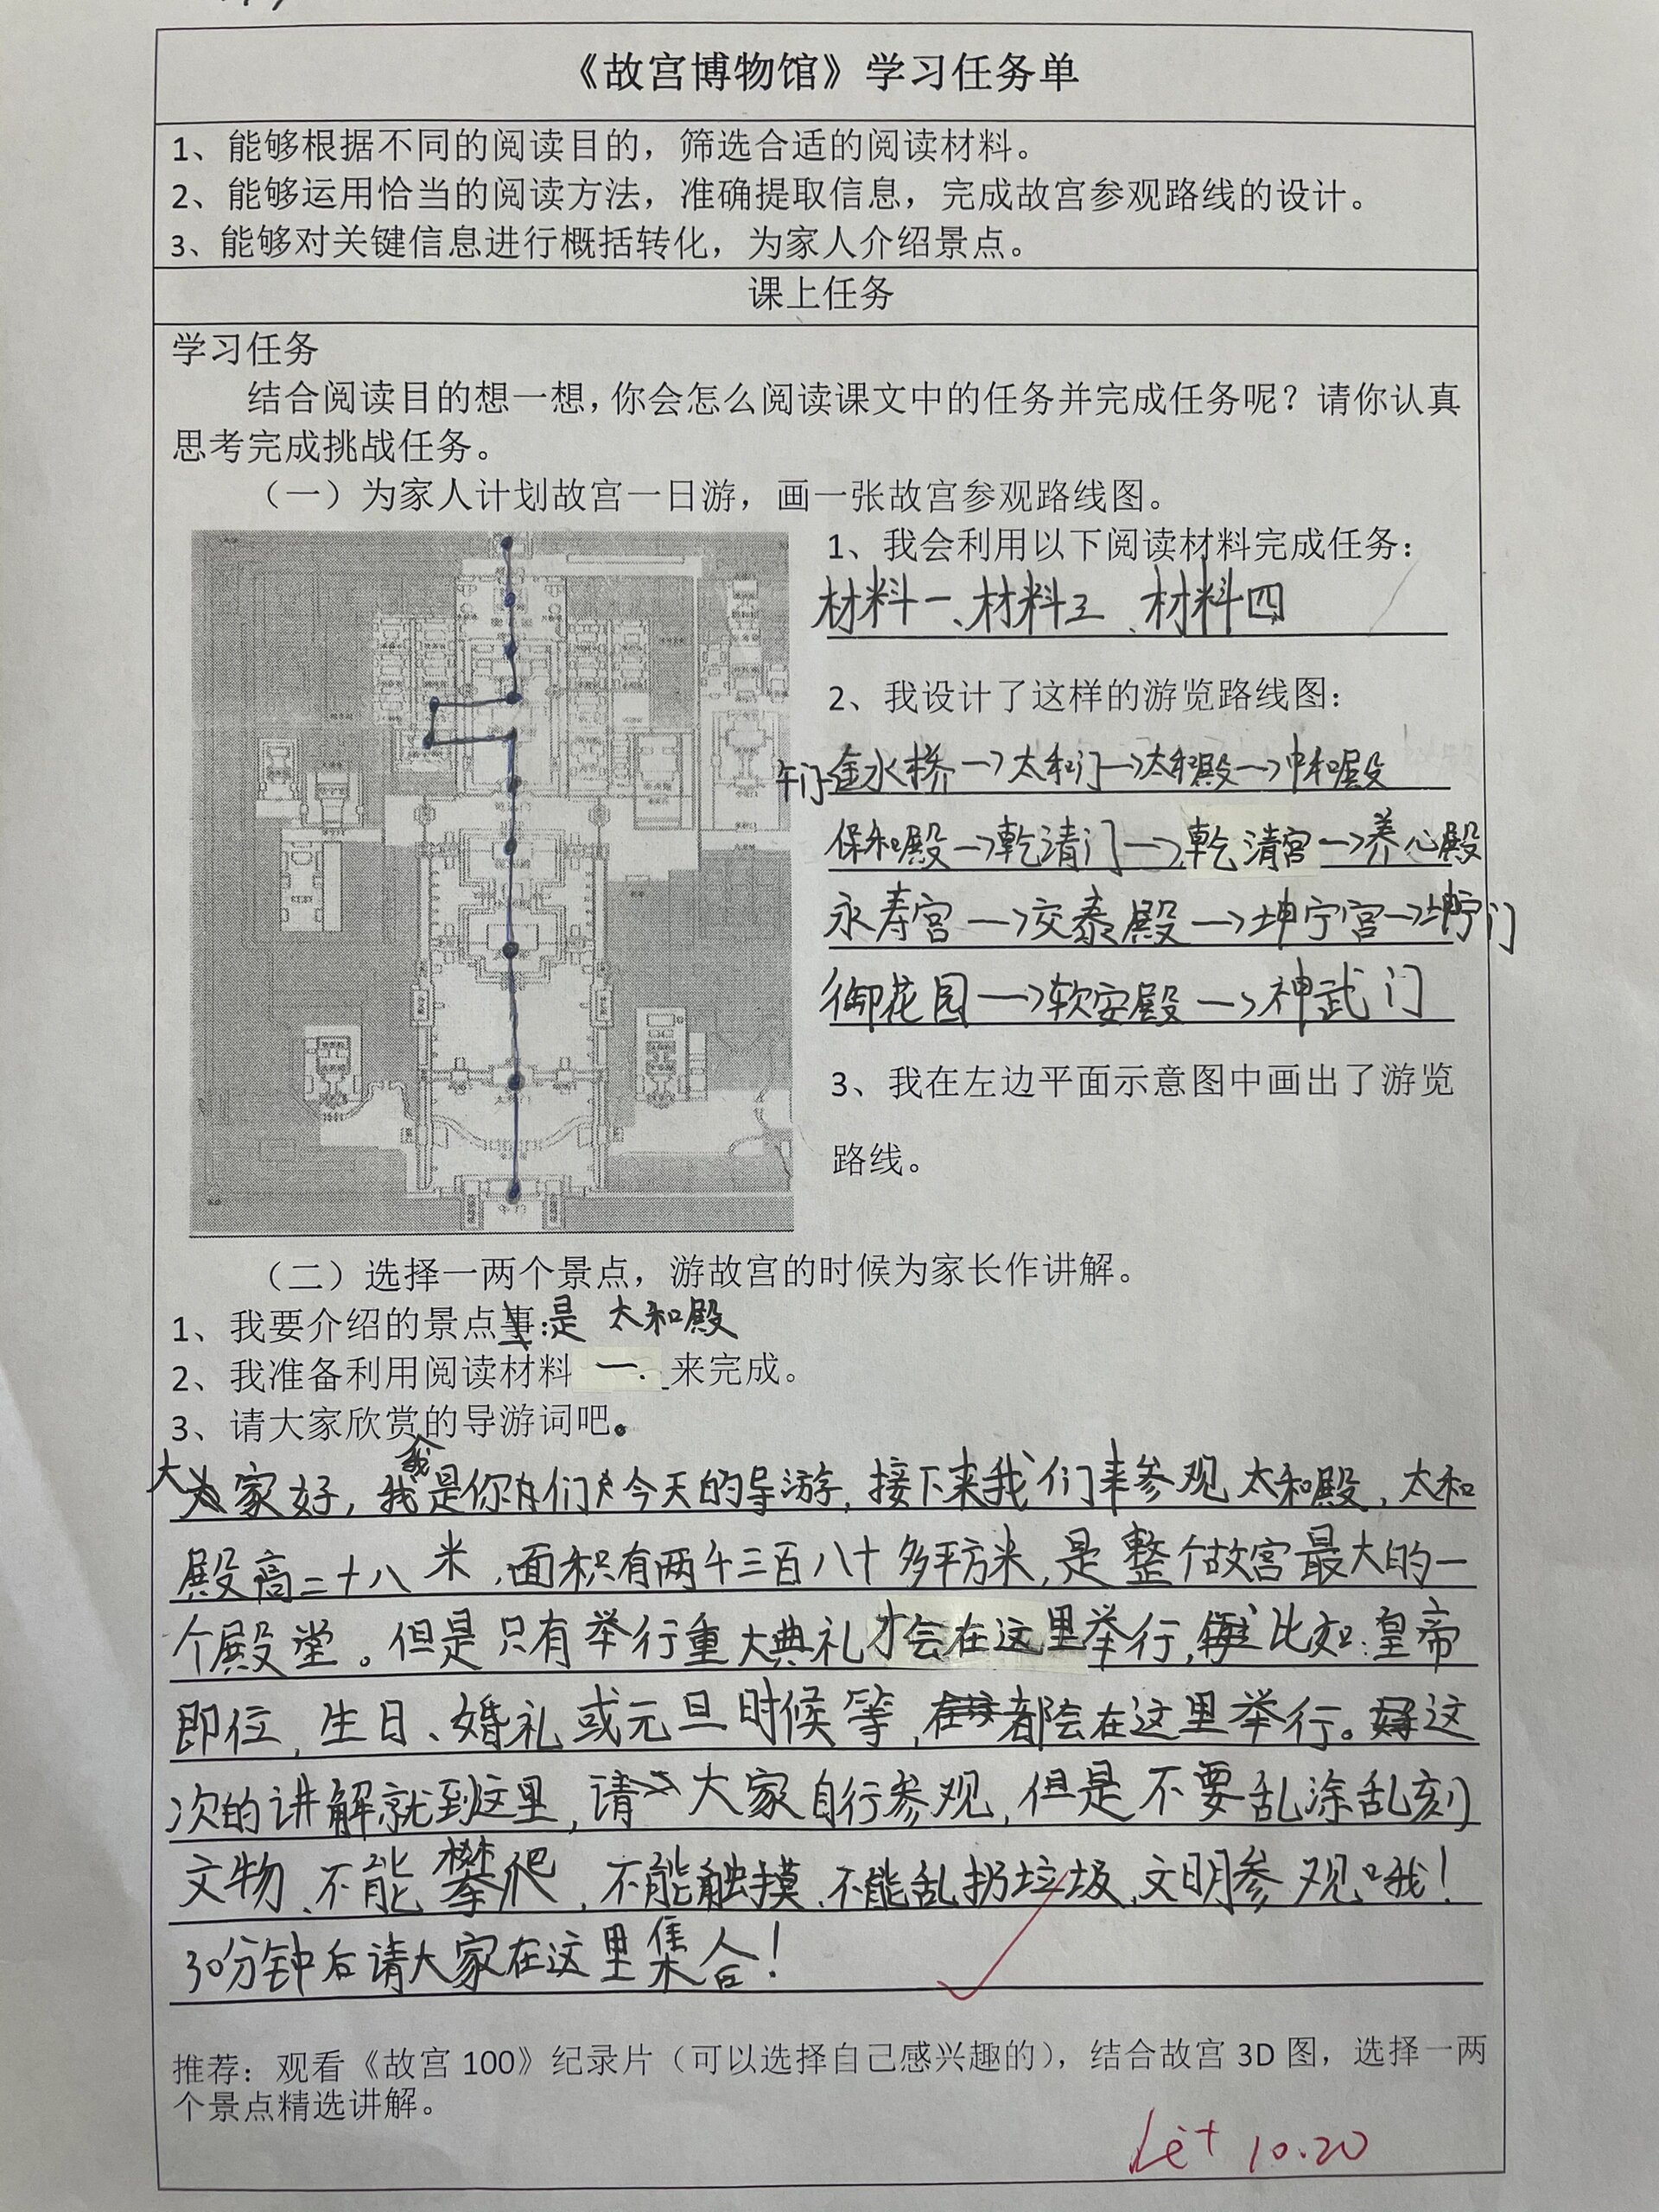 《故宫博物馆》学习任务单
1、能够根据不同的阅读目的，筛选合适的阅读材料。
2、能够运用恰当的阅读方法，准确提取信息，完成故宫参观路线的设计。
3、能够对关键信息进行概括转化，为家人介绍景点。
课上任务
学习任务
结合阅读目的想一想，你会怎么阅读课文中的任务并完成任务呢？请你认真
思考完成挑战任务。
（一）为家人计划故宫一日游，画一张故宫参观路线图。
1、我会利用以下阅读材料完成任务：
材料一、材料三、材料四
2、我设计了这样的游览路线图：
午门→金水桥→太和门→太和殿→中和殿
保和殿→乾清门→乾清宫→养心殿
永寿宫→交泰殿→坤宁宫→坤宁门
御花园→软安殿→神武门
3、我在左边平面示意图中画出了游览
路线。
午门
（二）选择一两个景点，游故宫的时候为家长作讲解。
1、我要介绍的景点事:是 太和殿
2、我准备利用阅读材料 一 来完成。
3、请大家欣赏的导游词吧。
大家好，我是你们今天的导游，接下来我们来参观太和殿，太和
殿高二十八米，面积有两千三百八十多平方米，是整个故宫最大的一
个殿堂。但是只有举行重大典礼才会在这里举行，比如：皇帝
即位，生日、婚礼或元旦时候等，都会在这里举行。这
次的讲解就到这里，请大家自行参观，但是不要乱涂乱刻
文物、不能攀爬，不能触摸、不能乱扔垃圾，文明参观哦！
30分钟后请大家在这里集合！
推荐：观看《故宫 100》纪录片（可以选择自己感兴趣的），结合故宫 3D 图，选择一两
个景点精选讲解。
10.20